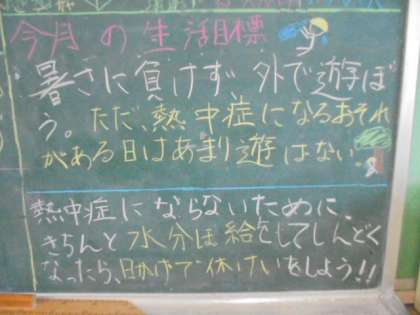 今月の生活目標
暑さに負けず、外で遊ぼ
う。ただ、熱中症になるおそれ
がある日はあまり遊はない。
熱中症にならないために、
きちんと水分ほ給をしてしんどく
なったら、日かげで休けいをしよう!!